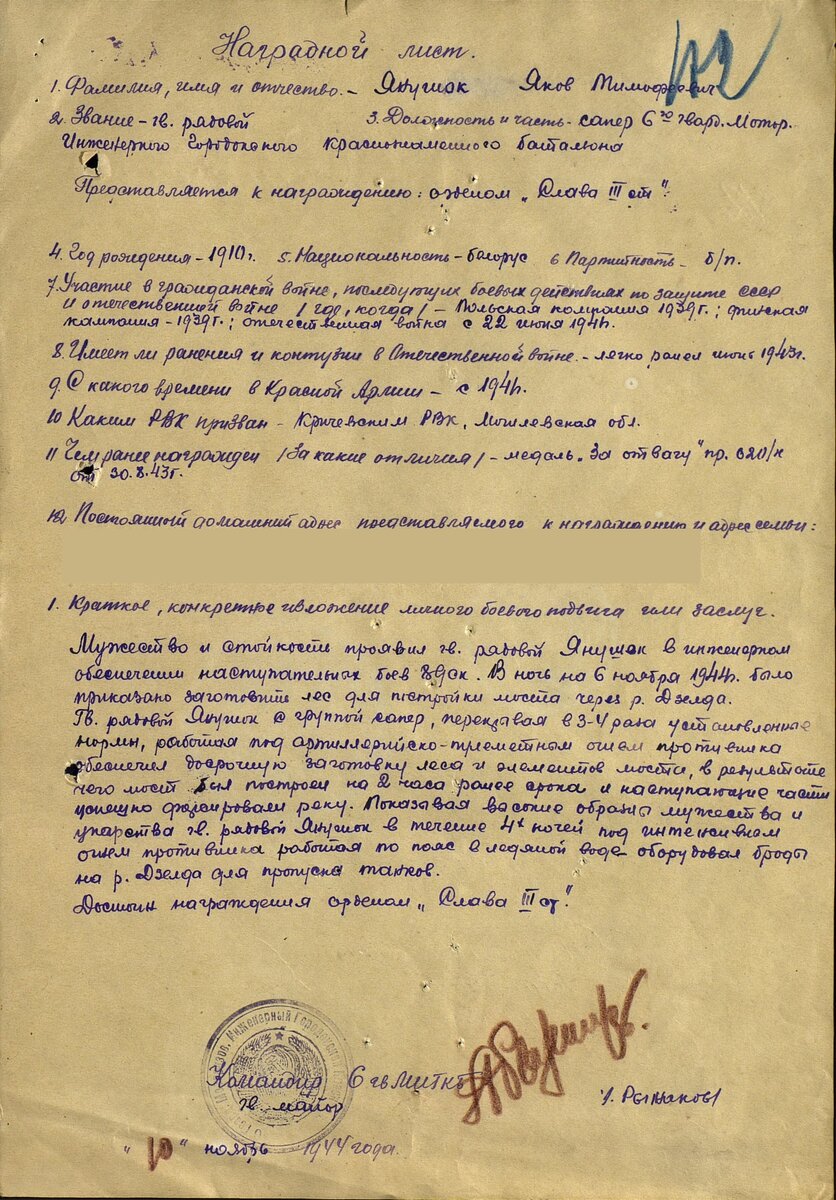 Наградной лист.
42
1. Фамилия, имя и отчество. - Янушок Яков Тимофеевич
2. Звание - гв. рядовой 3. Должность и часть - сапер 6го гвард. Мотор.
Инженерного Городокского Краснознаменного батальона
Представляется к награждению: орденом „Слава III ст".
4. Год рождения - 1910г. 5. Национальность - белорус 6 Партийность - б/п.
7. Участие в гражданской войне, последующих боевых действиях по защите СССР
и отечественной войне /где, когда/ - Польская компания 1939г.; финская
кампания - 1939г.; отечественная война с 22 июня 1941г.
8. Имеет ли ранения и контузии в Отечественной войне. - легко ранен июнь 1943г.
9. С какого времени в Красной Армии - с 1941г.
10 Каким РВК призван - Кричевским РВК, Могилевская обл.
11 Чем ранее награжден /За какие отличия/ - медаль „За отвагу" пр. 020/н
от 30.8.43г.
12. Постоянный домашний адрес представляемого к награждению и адрес семьи:
1. Краткое, конкретное изложение личного боевого подвига или заслуг.
Мужество и стойкость проявил гв. рядовой Янушок в инженерном
обеспечении наступательных боев. В ночь на 6 ноября 1944г. было
приказано заготовить лес для постройки моста через р. Дзелда.
Гв. рядовой Янушок с группой сапер, перекрывая в 3-4 раза установленные
нормы, работая под артиллерийско-пулеметным огнем противника
обеспечил досрочную заготовку леса и элементов моста, в результате
чего мост был построен на 2 часа ранее срока и наступающие части
успешно форсировали реку. Показывая высокие образцы мужества и
упорства гв. рядовой Янушок в течение 4х ночей под интенсивным
огнем противника работая по пояс в ледяной воде оборудовал броды
на р. Дзелда для пропуска танков.
Достоин награждения орденом „Слава III ст".
Инженерный
Командир 6 гв
гв. майор /. Рыжаков/
„10" ноябрь 1944 года.